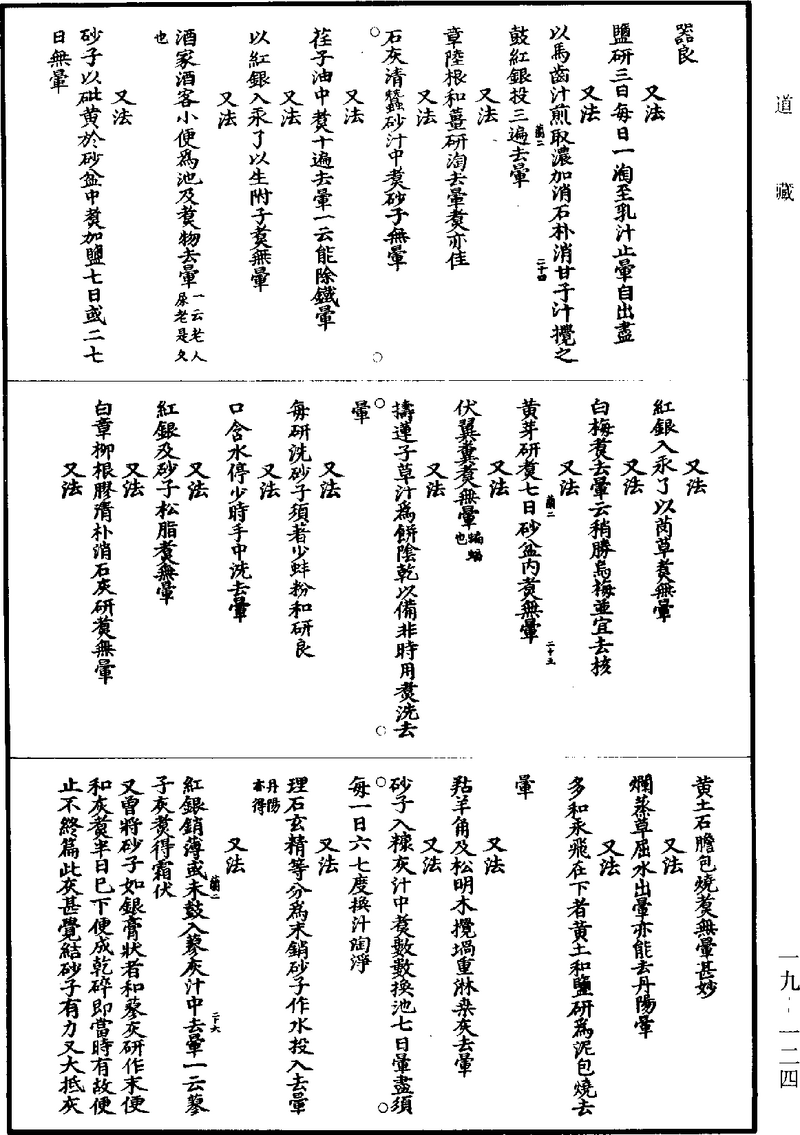 道藏
器良
又法
鹽研三日每日一淘至乳汁止暈自出盡
又法
以馬齒汁煎取濃加消石朴消甘子汁攪之
鼓紅銀投三遍去暈
蘭二
二十四
又法
章陸根和薑研淘去暈煑亦佳
又法
石灰清蠶砂汁中煑砂子無暈
又法
荏子油中煑十遍去暈一云能除鐵暈
又法
以紅銀入汞了以生附子煑無暈
又法
酒家酒客小便爲池及煑物去暈一云老人尿老是久
也
又法
砂子以砒黃於砂盆中煑加鹽七日或二七
日無暈
又法
紅銀入汞了以茵草煑無暈
又法
白梅煑去暈云稍勝烏梅並宜去核
又法
黃芽研煑七日砂盆內煑無暈
蘭二
二十五
又法
伏翼糞煑無暈蝙蝠也
又法
擣蓮子草汁爲餅陰乾以備非時用煑洗去
暈
又法
每研洗砂子須著少蚌粉和研良
又法
口含水停少時手中洗去暈
又法
紅銀及砂子松脂煑無暈
又法
白章柳根膠清朴消石灰研煑無暈
又法
黃土石膽包燒煑無暈甚妙
又法
爛蒸草屈水出暈亦能去丹陽暈
又法
多和汞飛在下者黃土和鹽研爲泥包燒去
暈
又法
羖羊角及松明木攪堝重淋桒灰去暈
又法
砂子入糠灰汁中煑數數換池七日暈盡須
每一日六七度換汁陶淨
又法
理石玄精等分爲末銷砂子作水投入去暈
丹陽亦得
又法
紅銀銷薄或末鼓入蓼灰汁中去暈一云蓼
蘭二
二十六
子灰煑得霜伏
又曾將砂子如銀膏狀者和蓼灰研作末便
和灰煑半日巳下便成乾碎即當時有故便
止不終篇此灰甚覺結砂子有力又大抵灰
一九－一二四